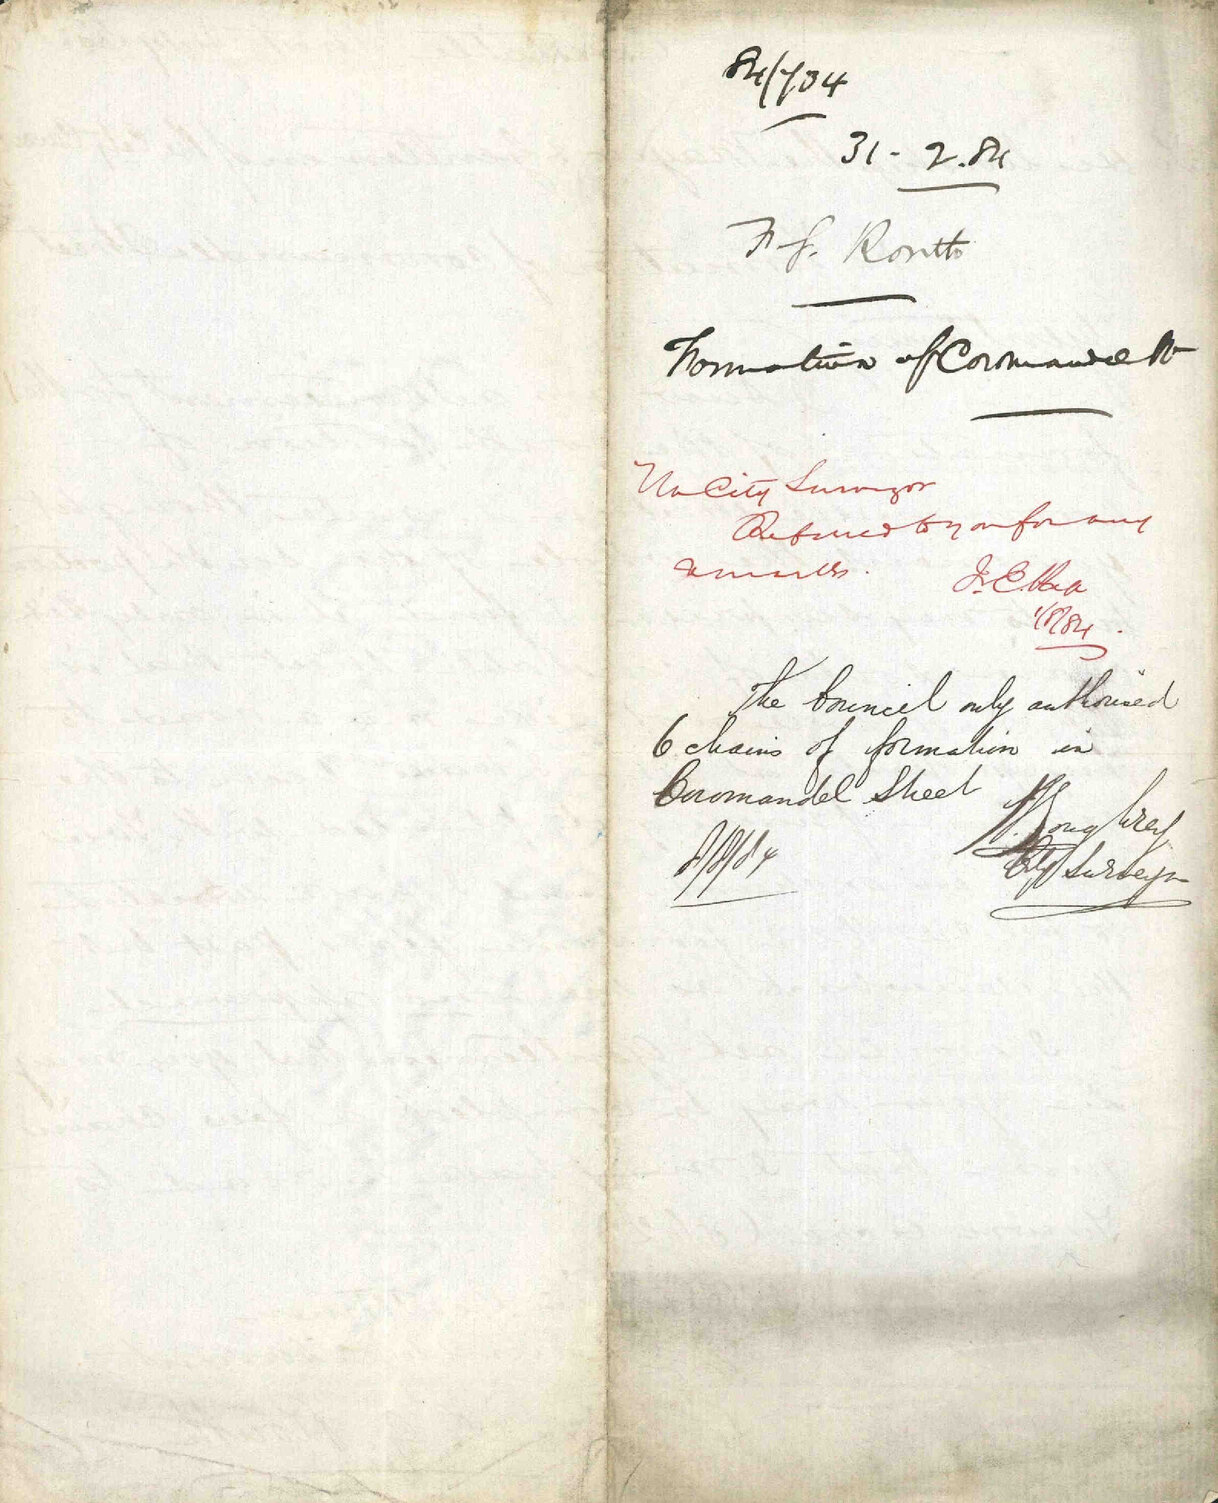 84/734
31-2.84
F. J. Rontto
Formation of Coromandel St
The City Surveyor
Referred to you for any
remarks.
1/8/84.
The Council only authorised
6 chains of formation in
Coromandel Street
City Surveyor
8/8/84